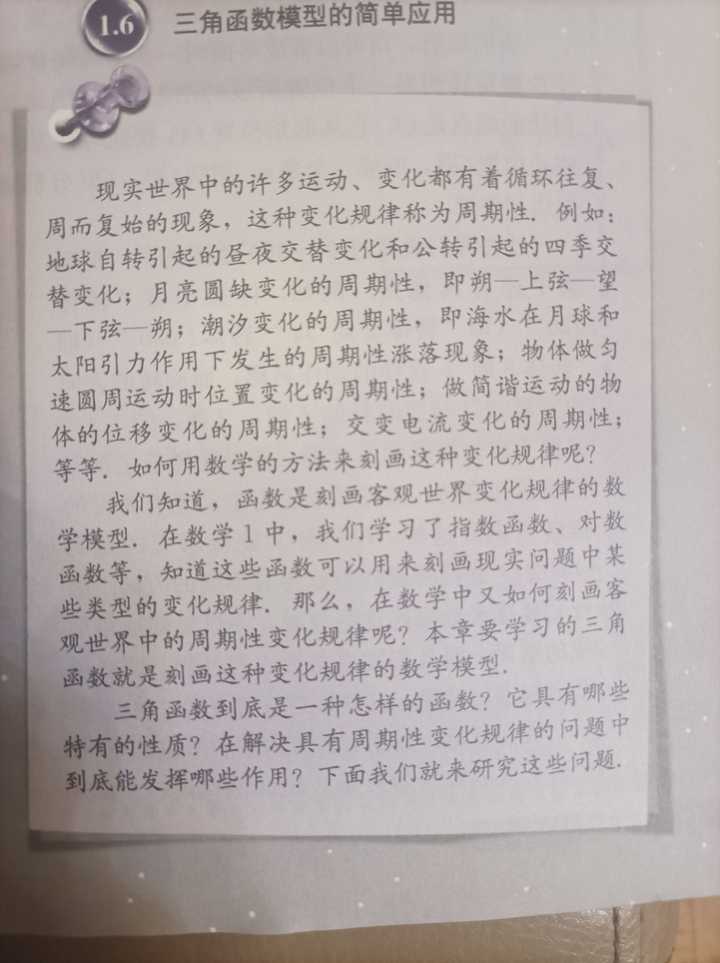 1.6 三角函数模型的简单应用
现实世界中的许多运动、变化都有着循环往复、
周而复始的现象，这种变化规律称为周期性．例如：
地球自转引起的昼夜交替变化和公转引起的四季交
替变化；月亮圆缺变化的周期性，即朔—上弦—望
—下弦—朔；潮汐变化的周期性，即海水在月球和
太阳引力作用下发生的周期性涨落现象；物体做匀
速圆周运动时位置变化的周期性；做简谐运动的物
体的位移变化的周期性；交变电流变化的周期性；
等等．如何用数学的方法来刻画这种变化规律呢？
我们知道，函数是刻画客观世界变化规律的数
学模型．在数学1中，我们学习了指数函数、对数
函数等，知道这些函数可以用来刻画现实问题中某
些类型的变化规律．那么，在数学中又如何刻画客
观世界中的周期性变化规律呢？本章要学习的三角
函数就是刻画这种变化规律的数学模型．
三角函数到底是一种怎样的函数？它具有哪些
特有的性质？在解决具有周期性变化规律的问题中
到底能发挥哪些作用？下面我们就来研究这些问题．